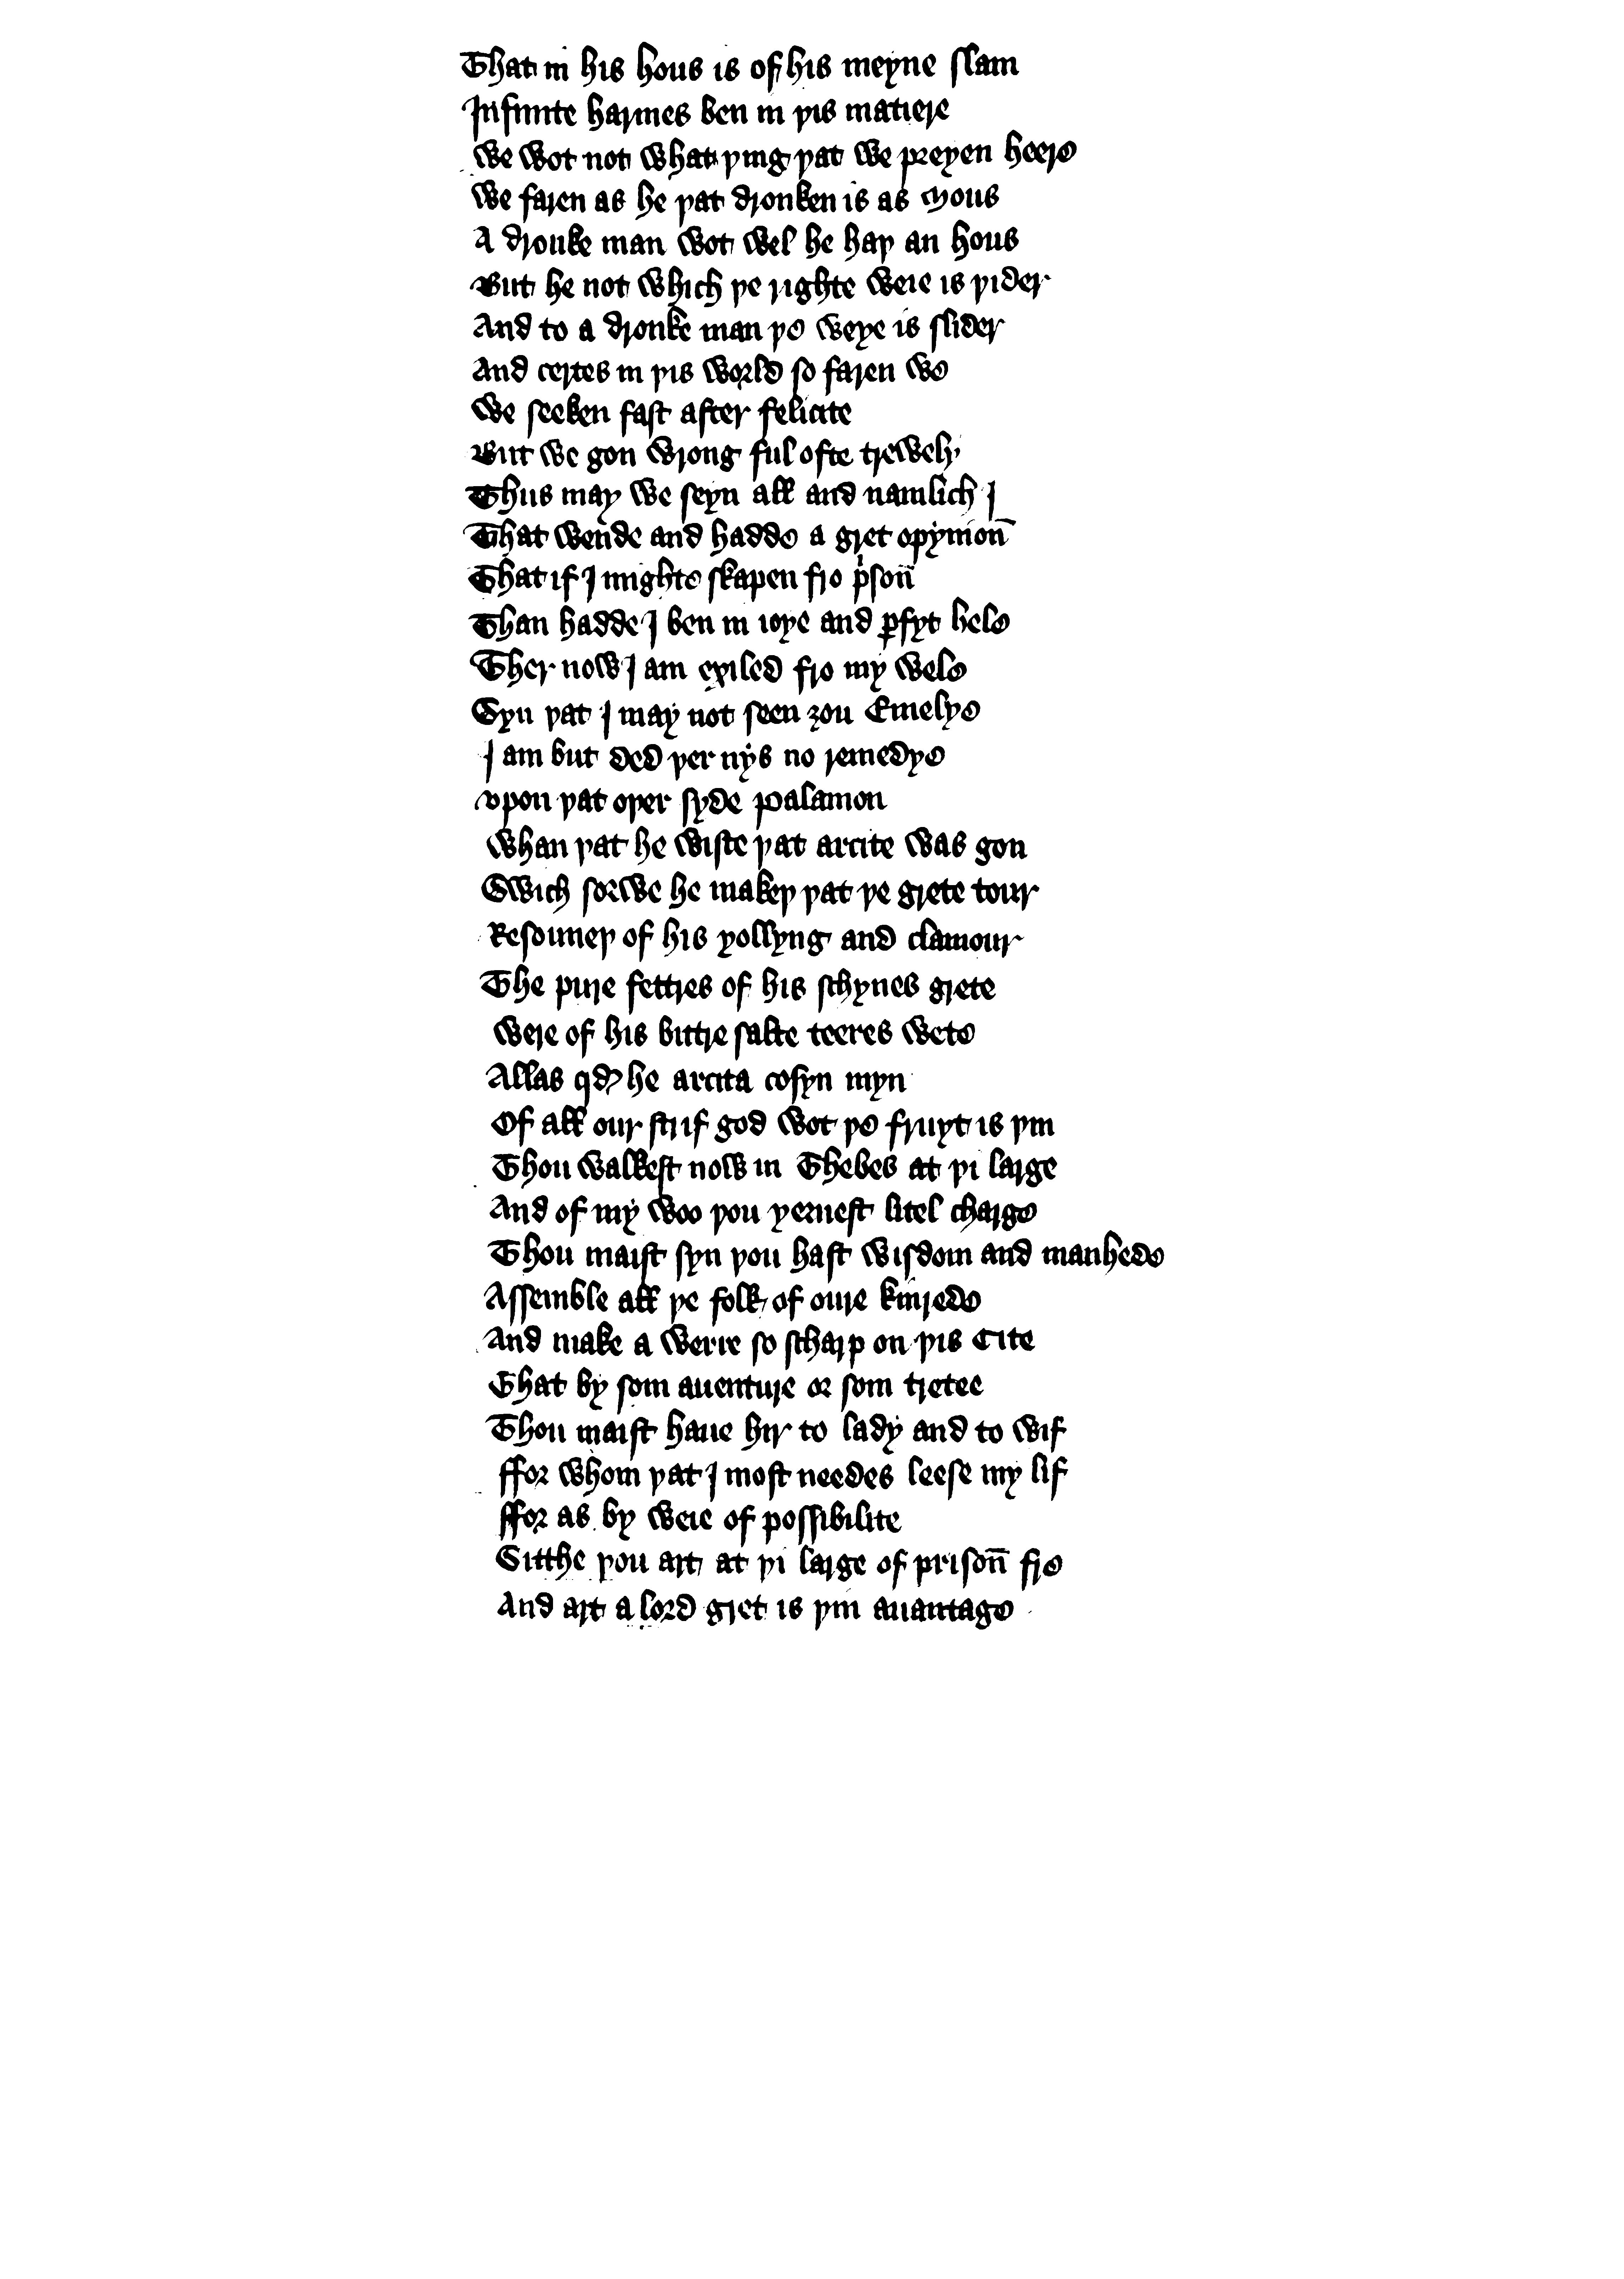 That in his hous is of his meyne slain
Infinite harmes ben in þis matiere
We wot not what þing þat we preyen heere
We faren as he þat dronken is as Mous
A dronke man wot wel he haþ an hous
But he not which þe righte weie is þider
And to a dronke man þe weye is slider
And certes in þis world so faren we
We seeken fast after felicite
But we gon wrong ful ofte trewely
Thus may we seyn all and namlich I
That wende and hadde a gret opynion̄
That if I mighte skapen fro pͥson̄
Than hadde I ben in ioye and ꝑfyt hele
Ther now I am exiled fro my wele
Syn þat I may not seen ȝou Emelye
I am but ded þer nys no remedye
Vpon þat oþer syde Palamon
Whan þat he wiste þat arcite was gon
Swich sorwe he makeþ þat þe grete tour
Resouneþ of his ȝollyng and clamour
The pure fettres of his schynes grete
Were of his bittre salte teeres wete
Allas qd he arcita cosyn myn
Of all our strif god wot þe fruyt is þin
Thou walkest now in Thebes at þi large
And of my woo þou ȝeuest litel charge
Thou maist syn þou hast wisdom and manhede
Assemble all þe folk of oure kinrede
And make a werre so scharp on þis Cite
That by som auenture or som tretee
Thou maist haue hir to lady and to wif
ffor whom þat I most needes leese my lif
ffor as by weie of possibilite
Sitthe þou art at þi large of prison̄ fre
And art a lord gret is þin auantage